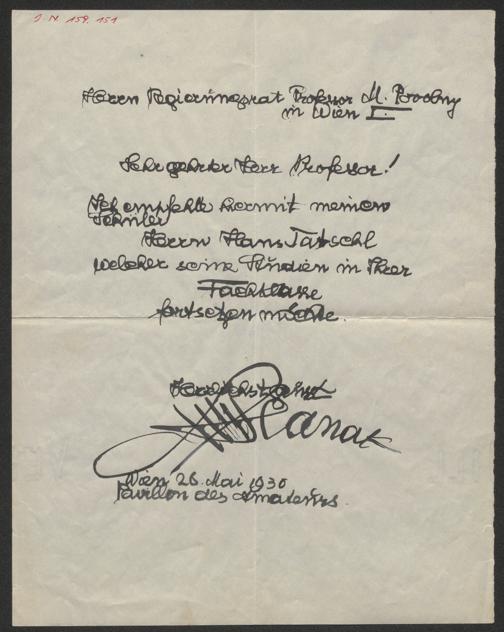 I.N. 159.151
Herrn Regierungsrat Professor M. Powolny
in Wien I.
Sehr geehrter Herr Professor!
Ich empfehle hiermit meinen
Schüler
Herrn Hans Tatschl
welcher seine Studien in Ihrer
Fachklasse
fortsetzen möchte.
Herzlichst grüßt
Hanak
Wien, 26. Mai 1930
Pavillon des Amateurs.